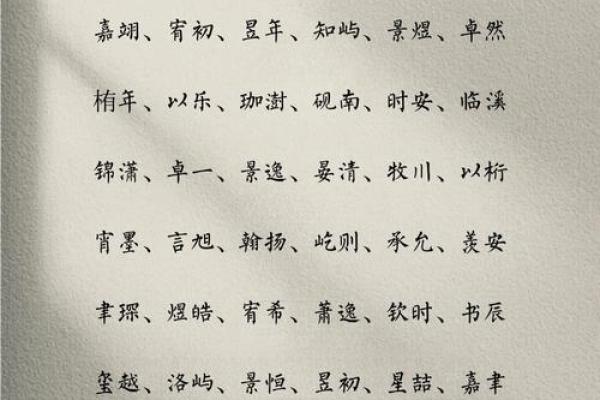 嘉翊、宥初、昱年、知屿、景煜、卓然
栯年、以乐、珈澍、砚南、时安、临溪
锦潇、卓一、景逸、晏清、牧川、以桁
宵墨、言旭、翰扬、屹则、承允、羡安
聿琛、煜皓、宥希、萧逸、钦时、书辰
玺越、洛屿、景恒、昱初、星喆、嘉聿